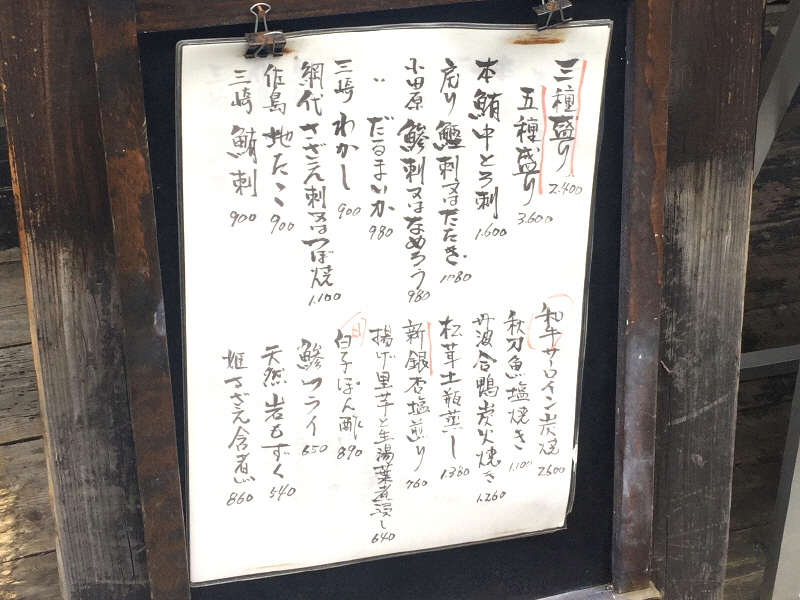 三種盛り 2.400
五種盛り 3.600
本鮪中とろ刺 1.600
戻り鰹刺又はたたき 1080
小田原 鯵刺又はなめろう 980
〃 だるまいか 980
三崎 わかし 900
網代 さざえ刺又はつぼ焼 1.100
佐島 地たこ 900
三崎 鮪刺 900
和牛サーロイン炭焼 2600
秋刀魚塩焼き 1.100
丹波合鴨炭火焼き 1.260
松茸土瓶蒸し 1.380
新銀杏塩煎り 760
揚げ里芋と生湯葉煮浸し 640
白子ぽん酢 890
鯵フライ 650
天然岩もずく 540
姫さざえ含煮 860